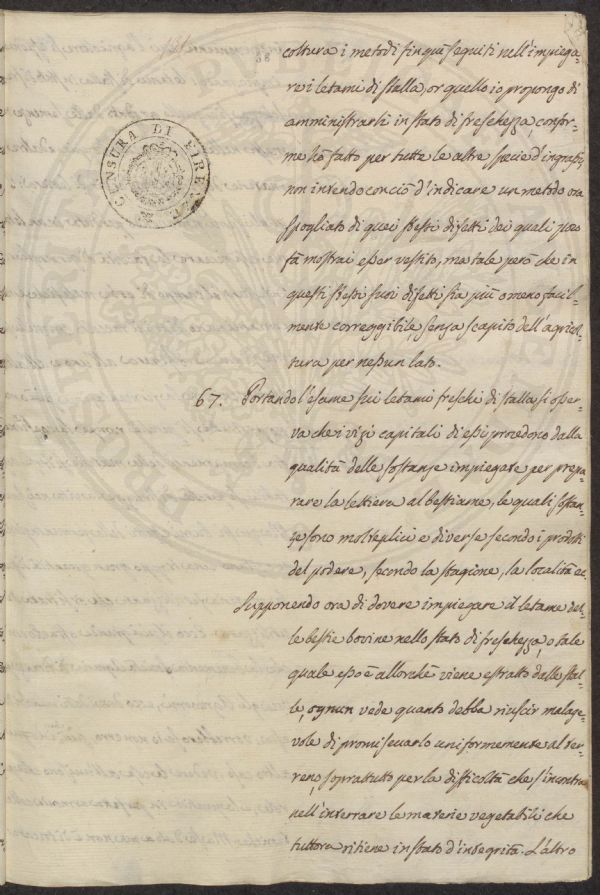 131
88
coltura i metodi finquì seguiti nell'impiega-
re i letami di stalla, or quello io propongo di
amministrarli in stato di freschezza, confor-
me hò fatto per tutte le altre specie d'ingrassi,
non intendo con ciò d'indicare un metodo ora
spogliato di quei stessi difetti dei quali poco
fà mostrai esser vestito, ma tale però che in
questi stessi suoi difetti sia più o meno facil-
mente correggibile, senza scapito dell'agricol-
tura per nessun lato.
67. Portando l'esame sui letami freschi di stalla si osser-
va che i vizi capitali di essi procedono dalla
qualità delle sostanze impiegate per prepa-
rare la lettiera al bestiame, le quali sostan-
ze sono molteplici e diverse secondo i prodotti
del podere, secondo la stagione, la località ec.
Supponendo ora di dovere impiegare il letame del-
le bestie bovine nello stato di freschezza, o tale
quale esso è allorchè viene estratto dalle stal-
le, ognun vede quanto debba riuscir malage-
vole di promiscuarlo uniformemente al ter-
reno, soprattutto per la difficoltà che s'incontra
nell'interrare le materie vegetabili che
tuttora ritiene in stato d'integrità. L'altro
CENSURA DI FIRENZE